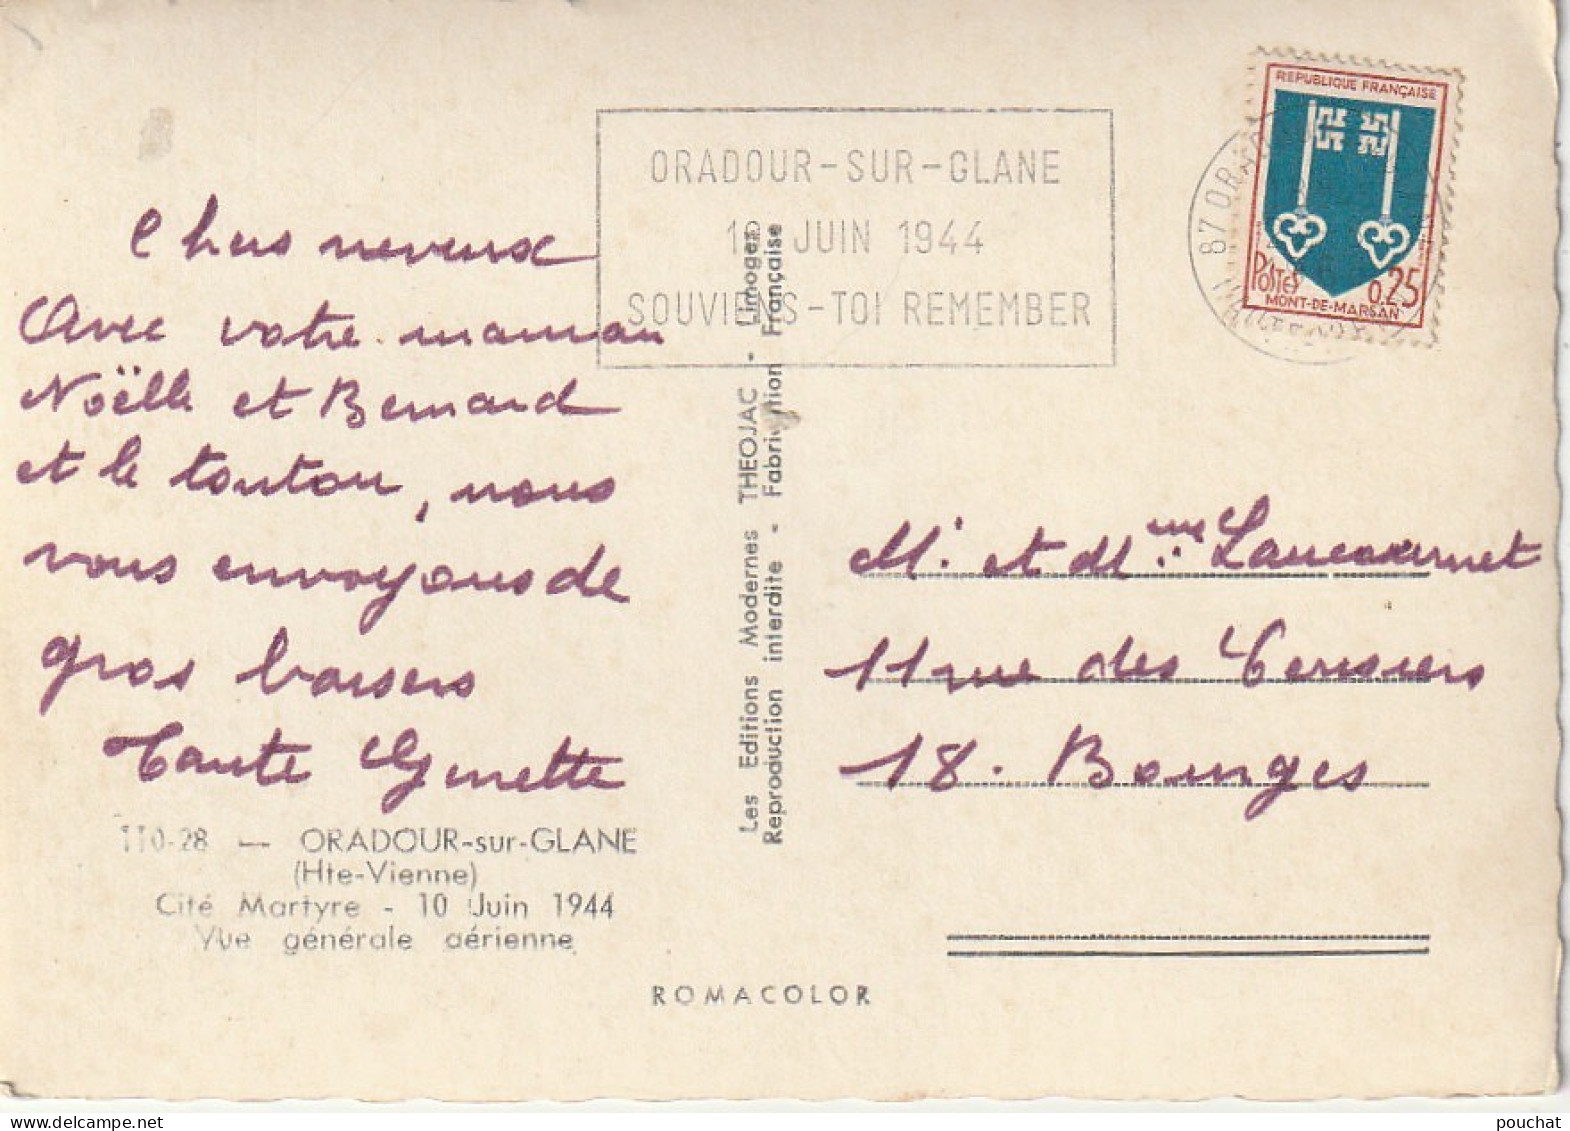 ORADOUR-SUR-GLANE
10 JUIN 1944
SOUVIENS-TOI REMEMBER
REPUBLIQUE FRANÇAISE
POSTES
0.25
MONT-DE-MARSAN
87 ORAD
Chers neveux
Avec votre maman
Noëlle et Bernard
et le tonton, nous
vous envoyons de
gros baisers
Tante Ginette
110-28 — ORADOUR-sur-GLANE
(Hte-Vienne)
Cité Martyre - 10 Juin 1944
Vue générale aérienne
Les Editions Modernes THEOJAC - Limoges
Reproduction interdite - Fabrication Française
M. et Mme
11 rue des Cerisiers
18. Bourges
ROMACOLOR
pouchat